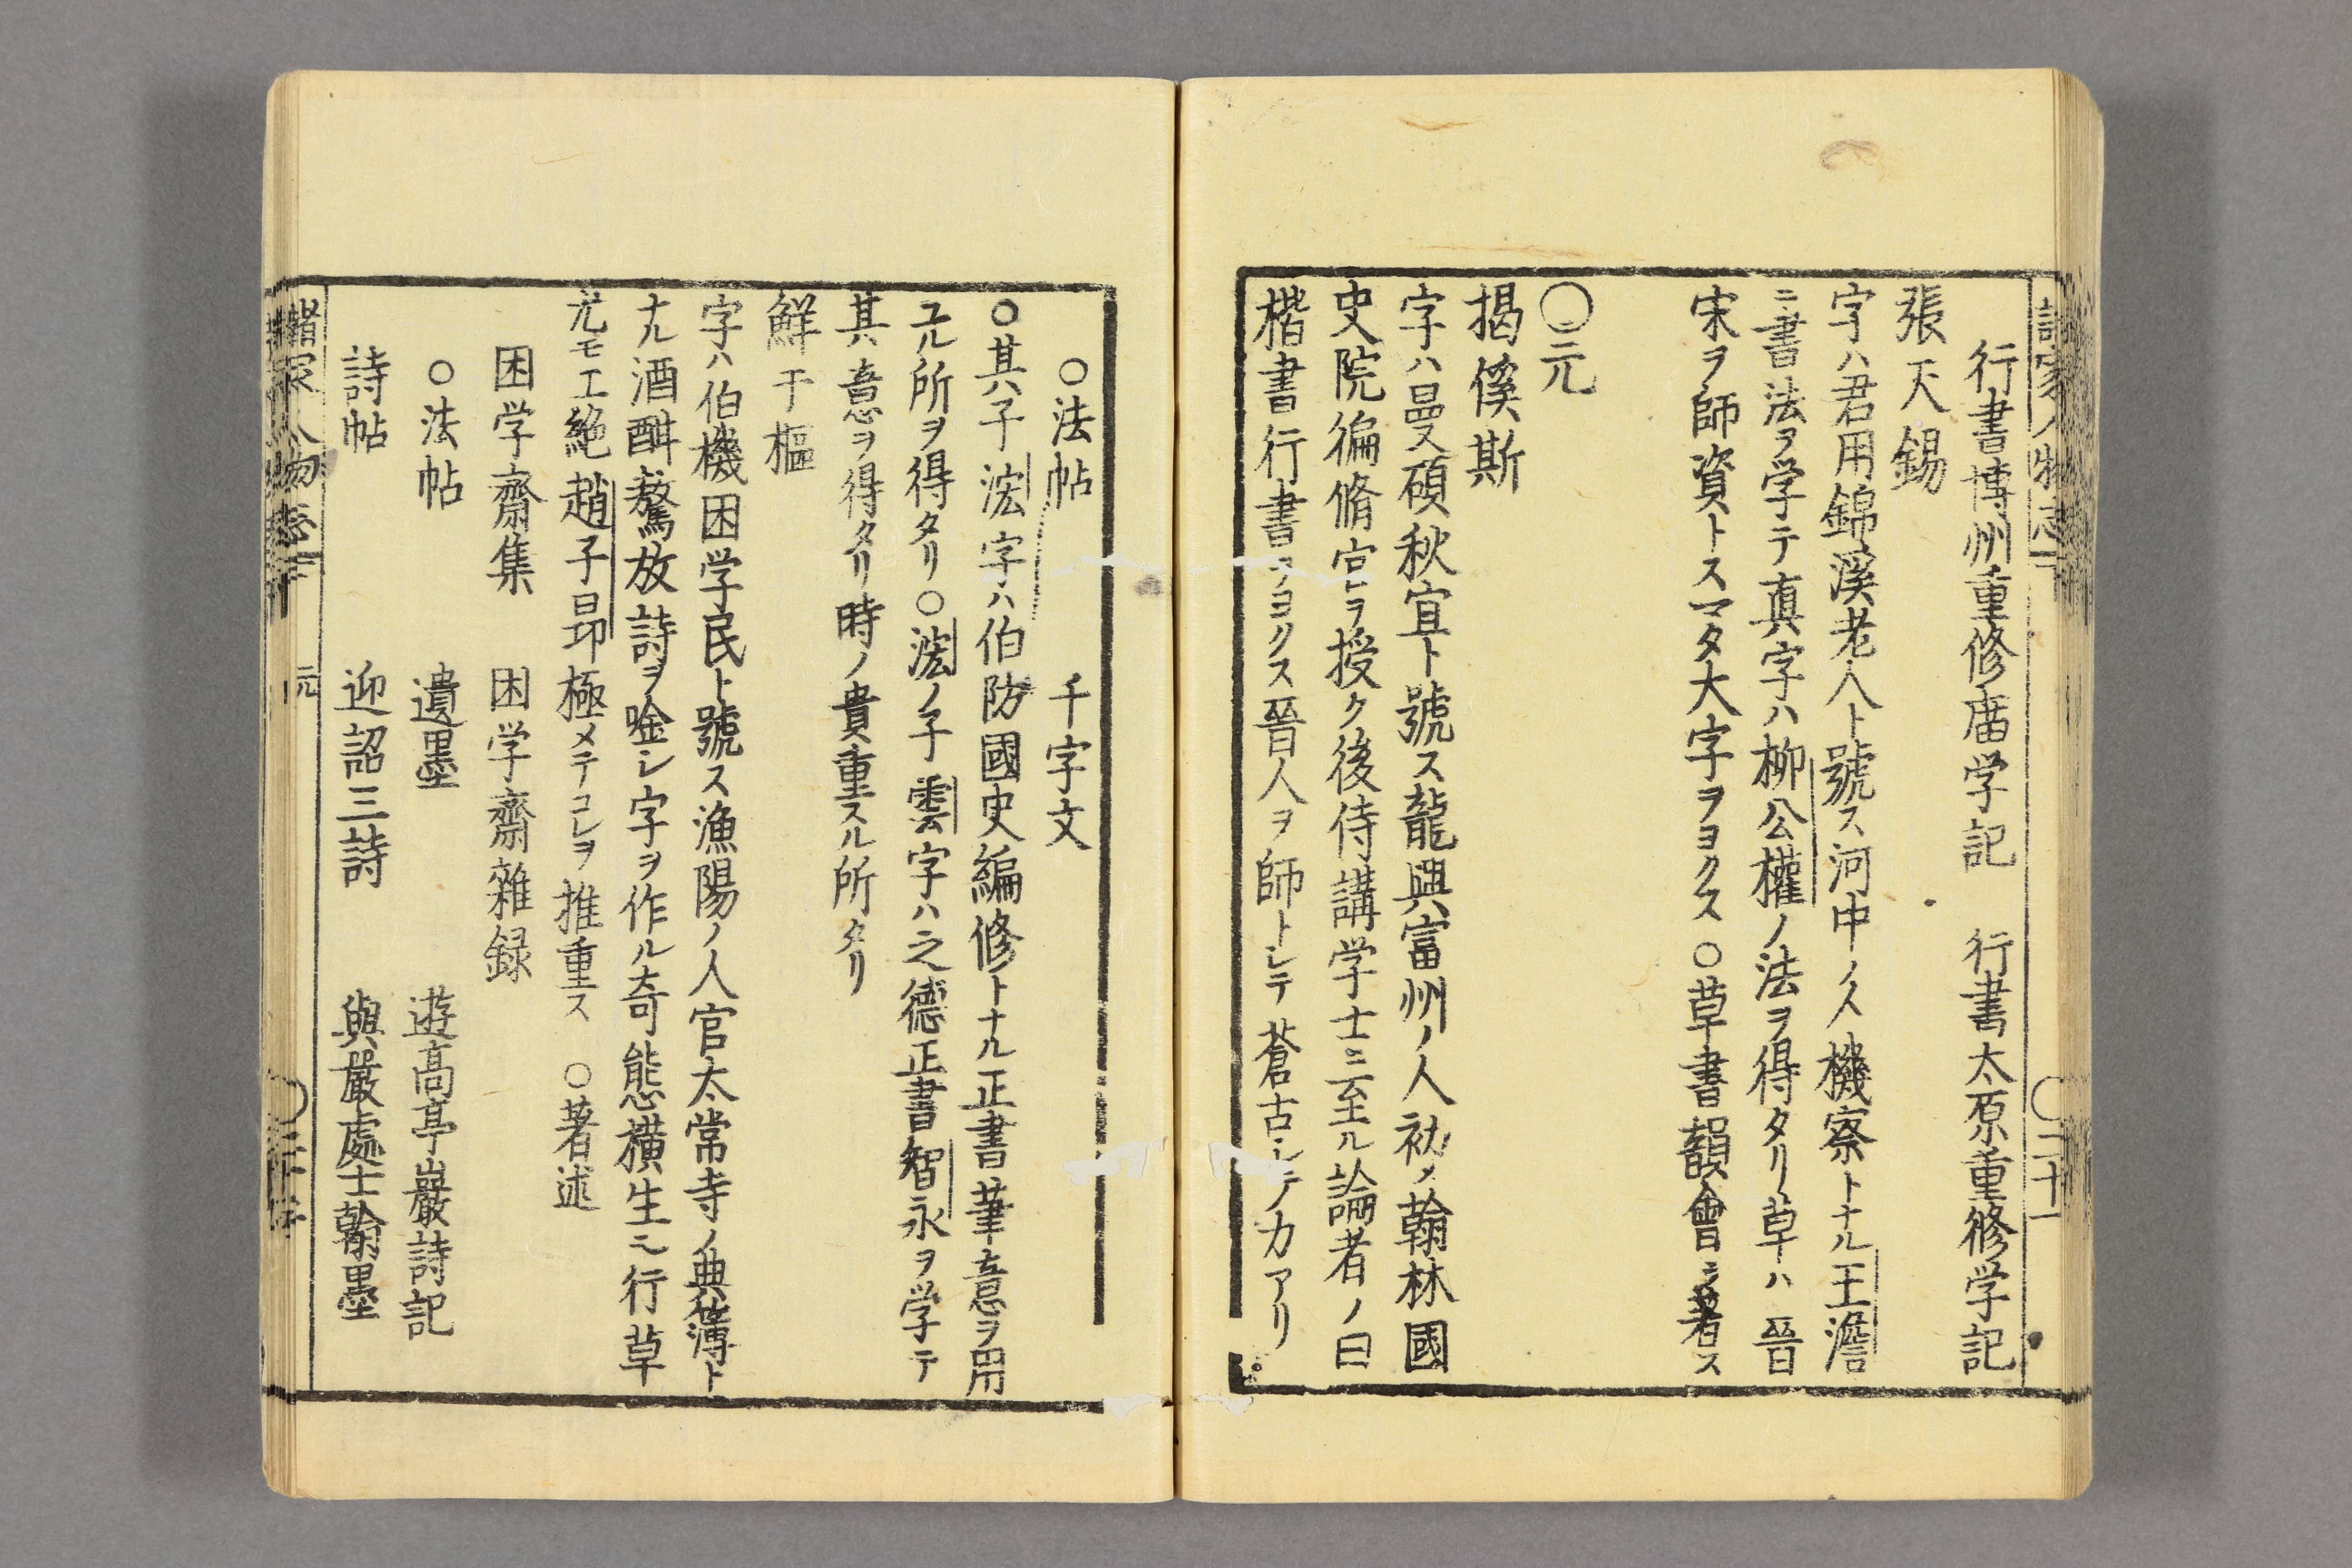 諸家人物志下 〇三十一
行書博州重修庿学記 行書太原重修学記
張天錫
字ハ君用錦溪老人ト號ス河中ノ人機察トナル王澹
ニ書法ヲ学テ真字ハ柳公權ノ法ヲ得タリ草ハ晉
宋ヲ師資トスマタ大字ヲヨクス〇草書韻會ヲ著ス
〇元
揭傒斯
字ハ曼碩秋宜ト號ス龍興富州ノ人初メ翰林國
史院編脩官ヲ授ク後侍講学士ニ至ル論者ノ曰
楷書行書ヲヨクス晉人ヲ師トシテ蒼古ニシテ力アリ
〇法帖 千字文
〇其子汯字ハ伯防國史編修トナル正書筆意ヲ用
ユル所ヲ得タリ〇汯ノ子雲字ハ之德正書智永ヲ学テ
其意ヲ得タリ時ノ貴重スル所タリ
鮮于樞
字ハ伯機困学民ト號ス漁陽ノ人官太常寺ノ典簿ト
ナル酒酣驁放詩ヲ唫シ字ヲ作ル奇態横生ス行草
尤モ工絶趙子昻極メテコレヲ推重ス 〇著述
困学齋集 困学齋雜録
〇法帖 遺墨 遊高亭巖詩記
詩帖 迎詔三詩 與嚴處士翰墨
諸家人物志下 元